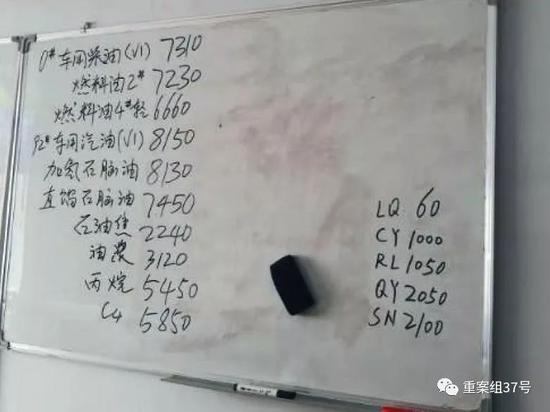 0#车用柴油(VI) 7310
燃料油2# 7230
燃料油4#轻 6660
92#车用汽油(VI) 8150
加氢石脑油 8130
直馏石脑油 7450
石油焦 2240
油浆 3120
丙烷 5450
C4 5850
LQ 60
CY 1000
RL 1050
QY 2050
SN 2100
重案组37号